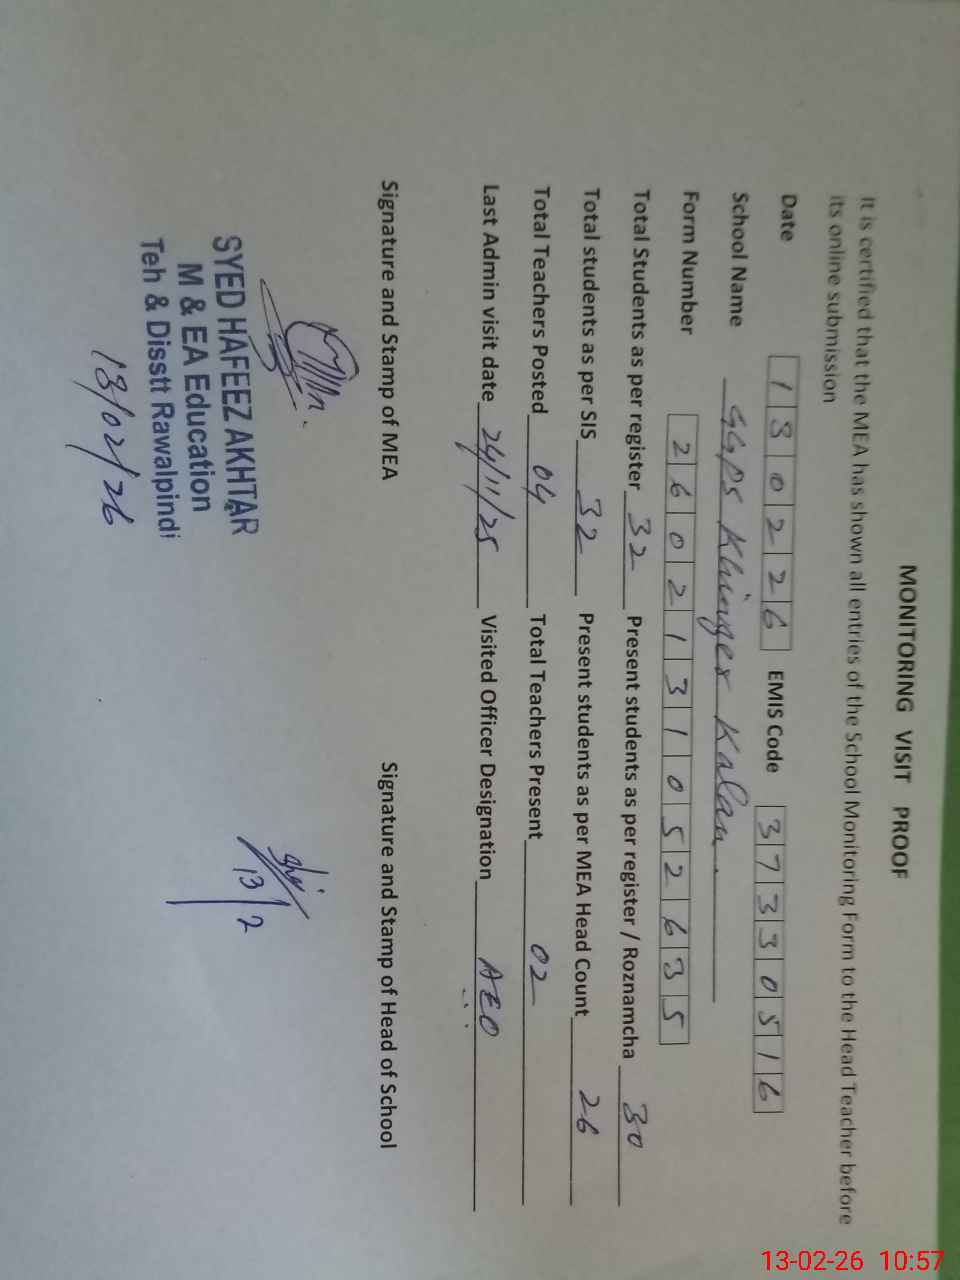 MONITORING VISIT PROOF
It is certified that the MEA has shown all entries of the School Monitoring Form to the Head Teacher before
its online submission
Date 1 3 0 2 2 6 EMIS Code 3 7 3 3 0 5 1 6
School Name GGPS Khinger Kalan
Form Number 2 6 0 2 1 3 1 0 5 2 6 3 5
Total Students as per register 32 Present students as per register / Roznamcha 30
Total students as per SIS 32 Present students as per MEA Head Count 26
Total Teachers Posted 04 Total Teachers Present 02
Last Admin visit date 24/11/25 Visited Officer Designation AEO
Signature and Stamp of MEA Signature and Stamp of Head of School
13/2
SYED HAFEEZ AKHTAR
M & EA Education
Teh & Disstt Rawalpindi
13/02/26
13-02-26 10:57